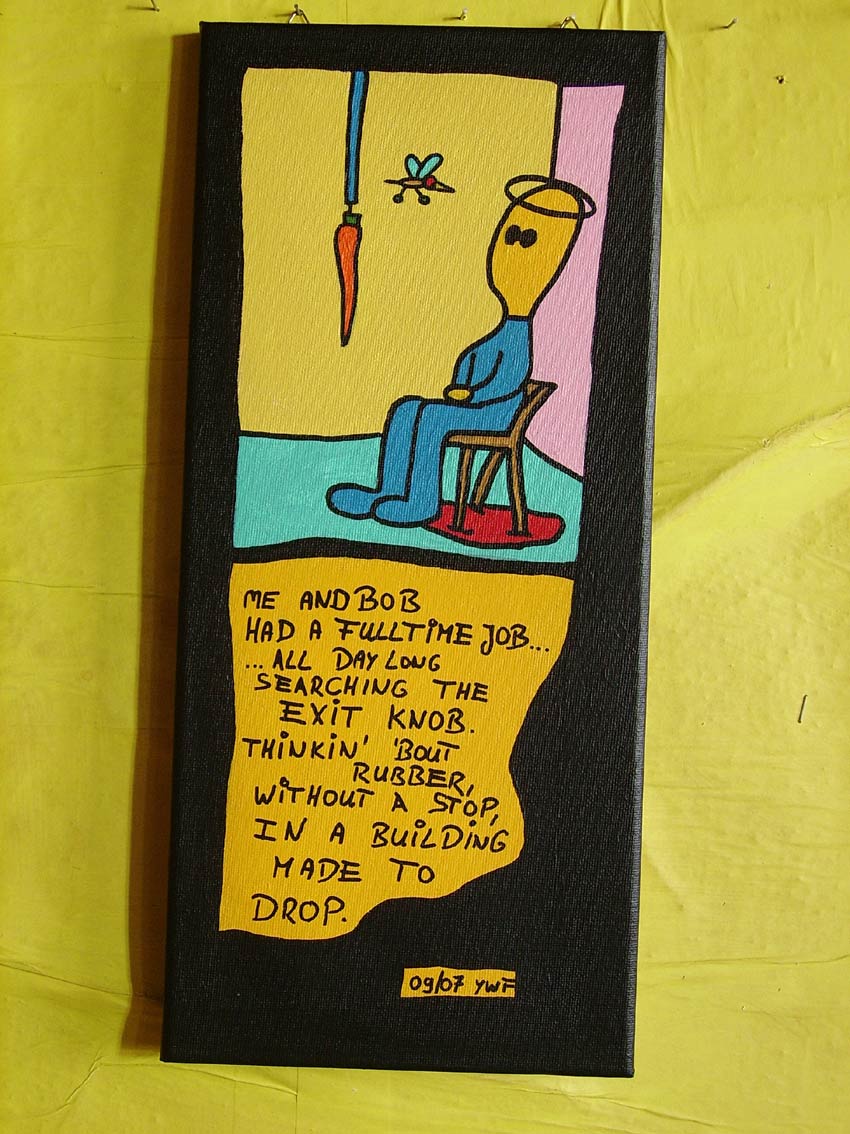 ME AND BOB
HAD A FULLTiME JOB...
...ALL DAY LONG
SEARCHiNG THE
EXiT KNOB.
THiNKiN' 'BOUT
RUBBER,
WiTHOUT A STOP,
IN A BUiLDiNG
MADE TO
DROP.
09/07 YWF